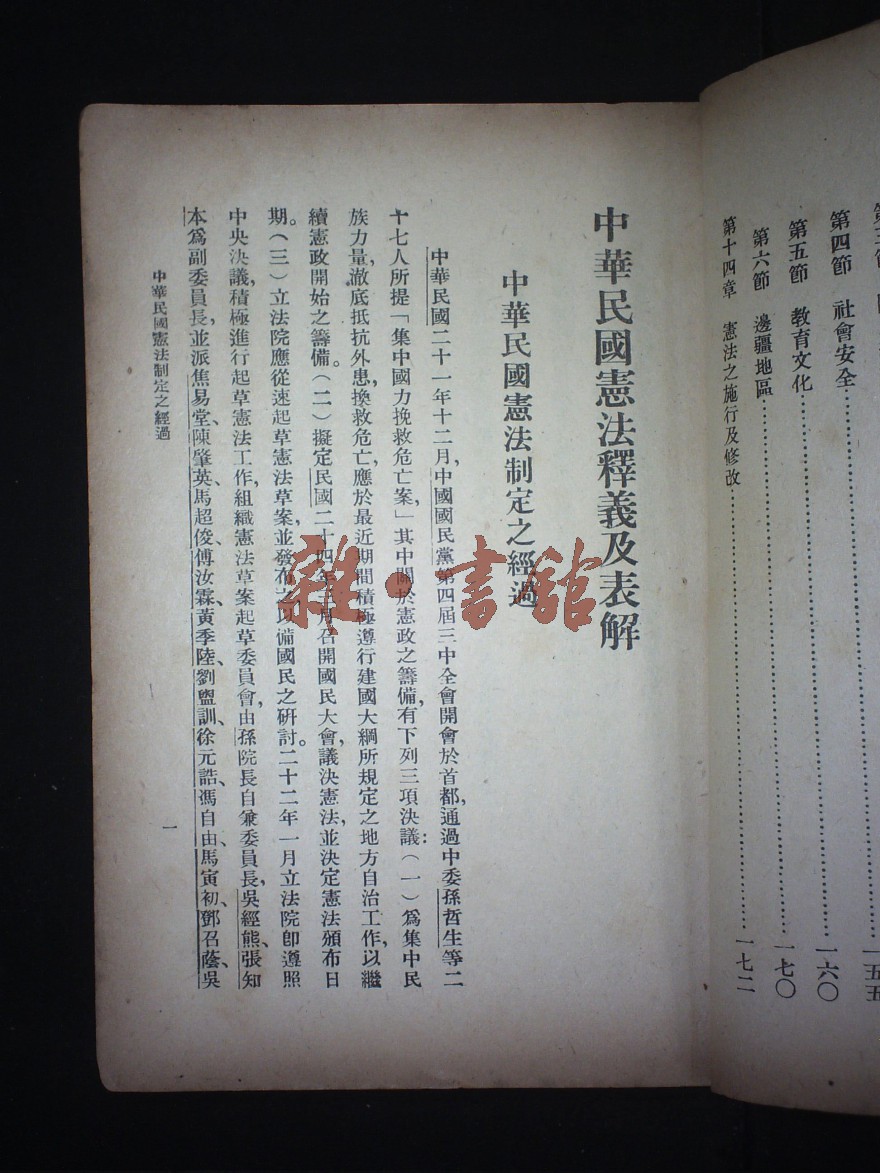 第四節 社會安全 一六〇
第五節 教育文化 一七〇
第六節 邊疆地區
第十四章 憲法之施行及修改 一七二
中華民國憲法釋義及表解
中華民國憲法制定之經過
中華民國二十一年十二月,中國國民黨第四屆三中全會開會於首都,通過中委孫哲生等二
十七人所提「集中國力挽救危亡案,」其中關於憲政之籌備,有下列三項決議:(一)爲集中民
族力量,澈底抵抗外患,換救危亡,應於最近期間積極遵行建國大綱所規定之地方自治工作,以繼
續憲政開始之籌備。(二)擬定民國二十四年三月召開國民大會,議決憲法,並決定憲法頒布日
期。(三)立法院應從速起草憲法草案,並發布之,以備國民之硏討。二十二年一月立法院卽遵照
中央決議,積極進行起草憲法工作,組織憲法草案起草委員會,由孫院長自兼委員長,吳經熊、張知
本爲副委員長,並派焦易堂、陳肇英、馬超俊、傅汝霖、黃季陸、劉盥訓、徐元誥、馮自由、馬寅初、鄧召蔭、吳
中華民國憲法制定之經過
一
雜·書館